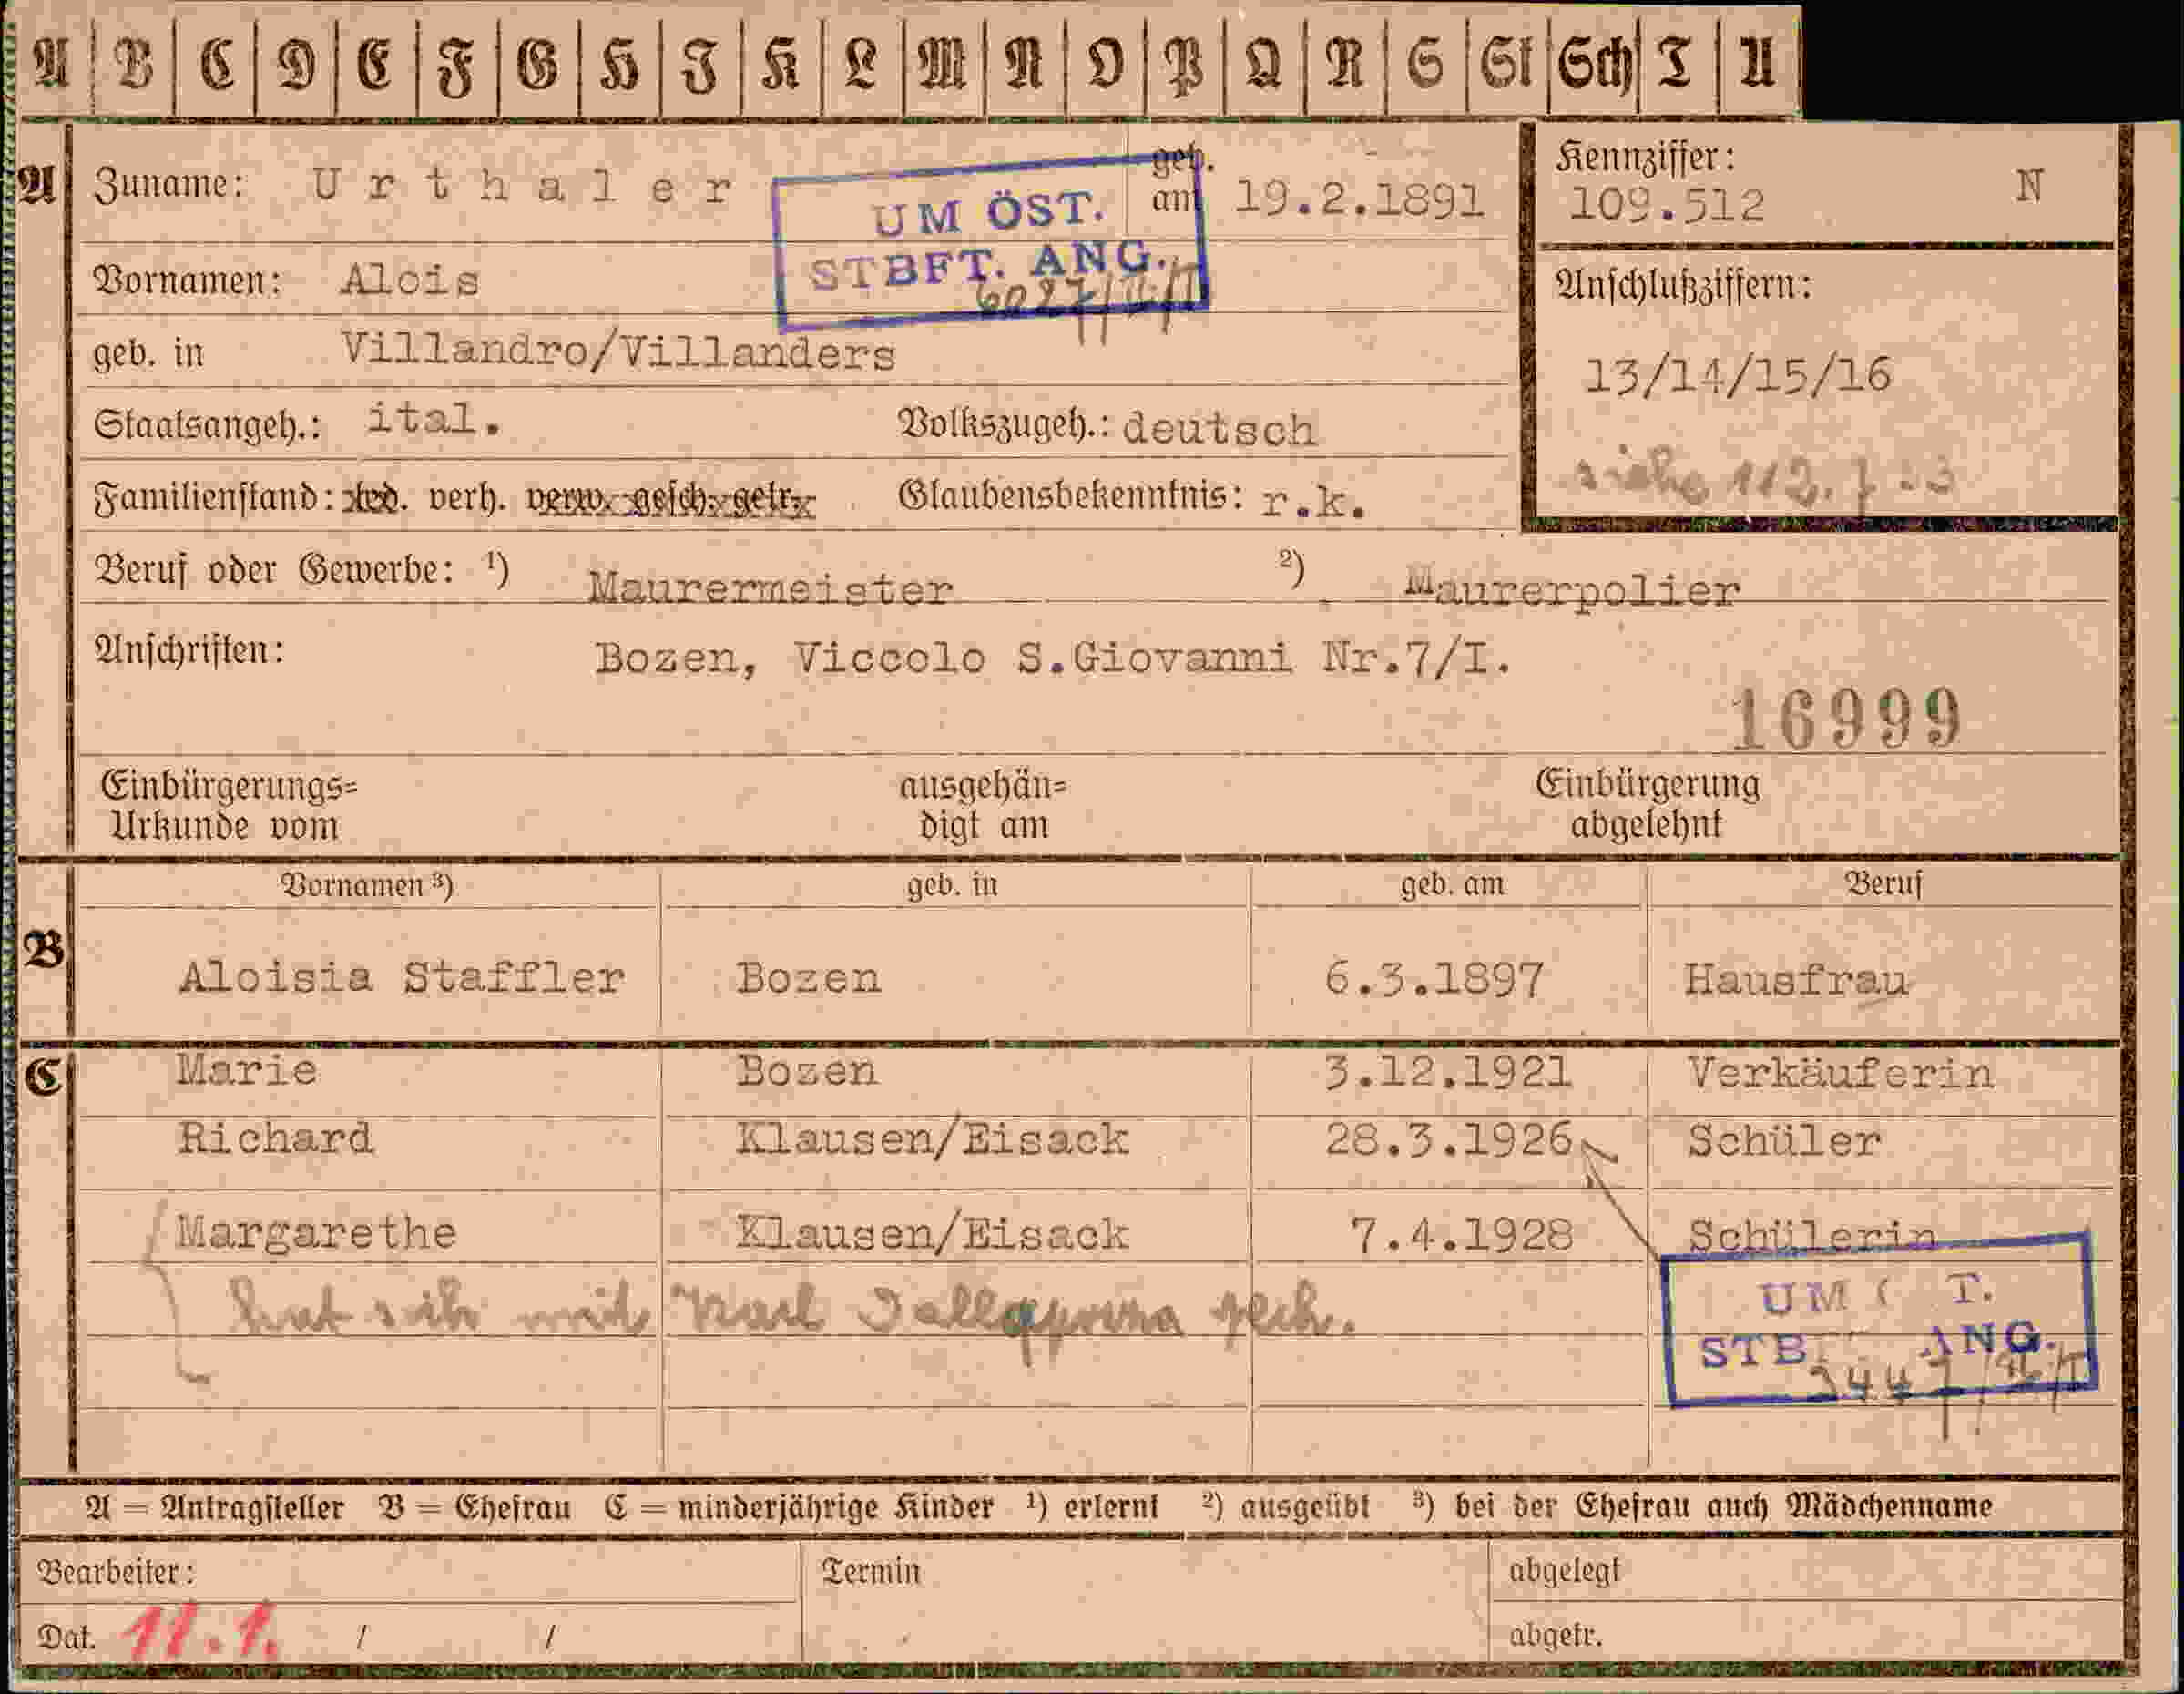 A B C D E F G H I K L M N O P Q R S St Sch T U
A Zuname: Urthaler geb. am 19.2.1891
UM ÖST.
STBFT. ANG.
Kennziffer:
109.512 N
Vornamen: Alois
Anschlußziffern:
geb. in Villandro/Villanders
13/14/15/16
Staatsangeh.: ital. Volkszugeh.: deutsch
siehe
Familienstand: led. verh. verw. gesch. getr. Glaubensbekenntnis: r.k.
Beruf oder Gewerbe: ¹) Maurermeister ²) Maurerpolier
Anschriften: Bozen, Viccolo S.Giovanni Nr.7/I.
16999
Einbürgerungs= ausgehän= Einbürgerung
Urkunde vom digt am abgelehnt
Vornamen ³) geb. in geb. am Beruf
B Aloisia Staffler Bozen 6.3.1897 Hausfrau
C Marie Bozen 3.12.1921 Verkäuferin
Richard Klausen/Eisack 28.3.1926 Schüler
Margarethe Klausen/Eisack 7.4.1928 Schülerin
hat sich mit Karl
UM T.
STB ANG.
A = Antragsteller B = Ehefrau C = minderjährige Kinder ¹) erlernt ²) ausgeübt ³) bei der Ehefrau auch Mädchenname
Bearbeiter: Termin abgelegt
Dat. 11.1. / / abgetr.